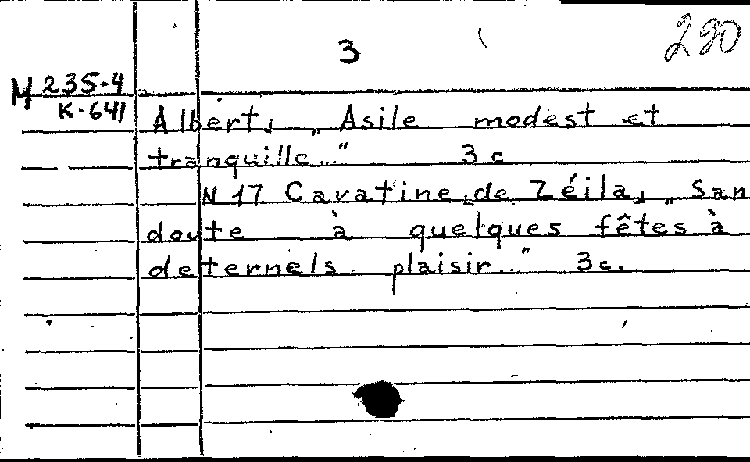 3
290
M 235-4
K-641
Albert, „Asile modest et
tranquille..." 3 c
N 17 Cavatine de Zéila, „San
doute à quelques fêtes à
deternels plaisir..." 3c.